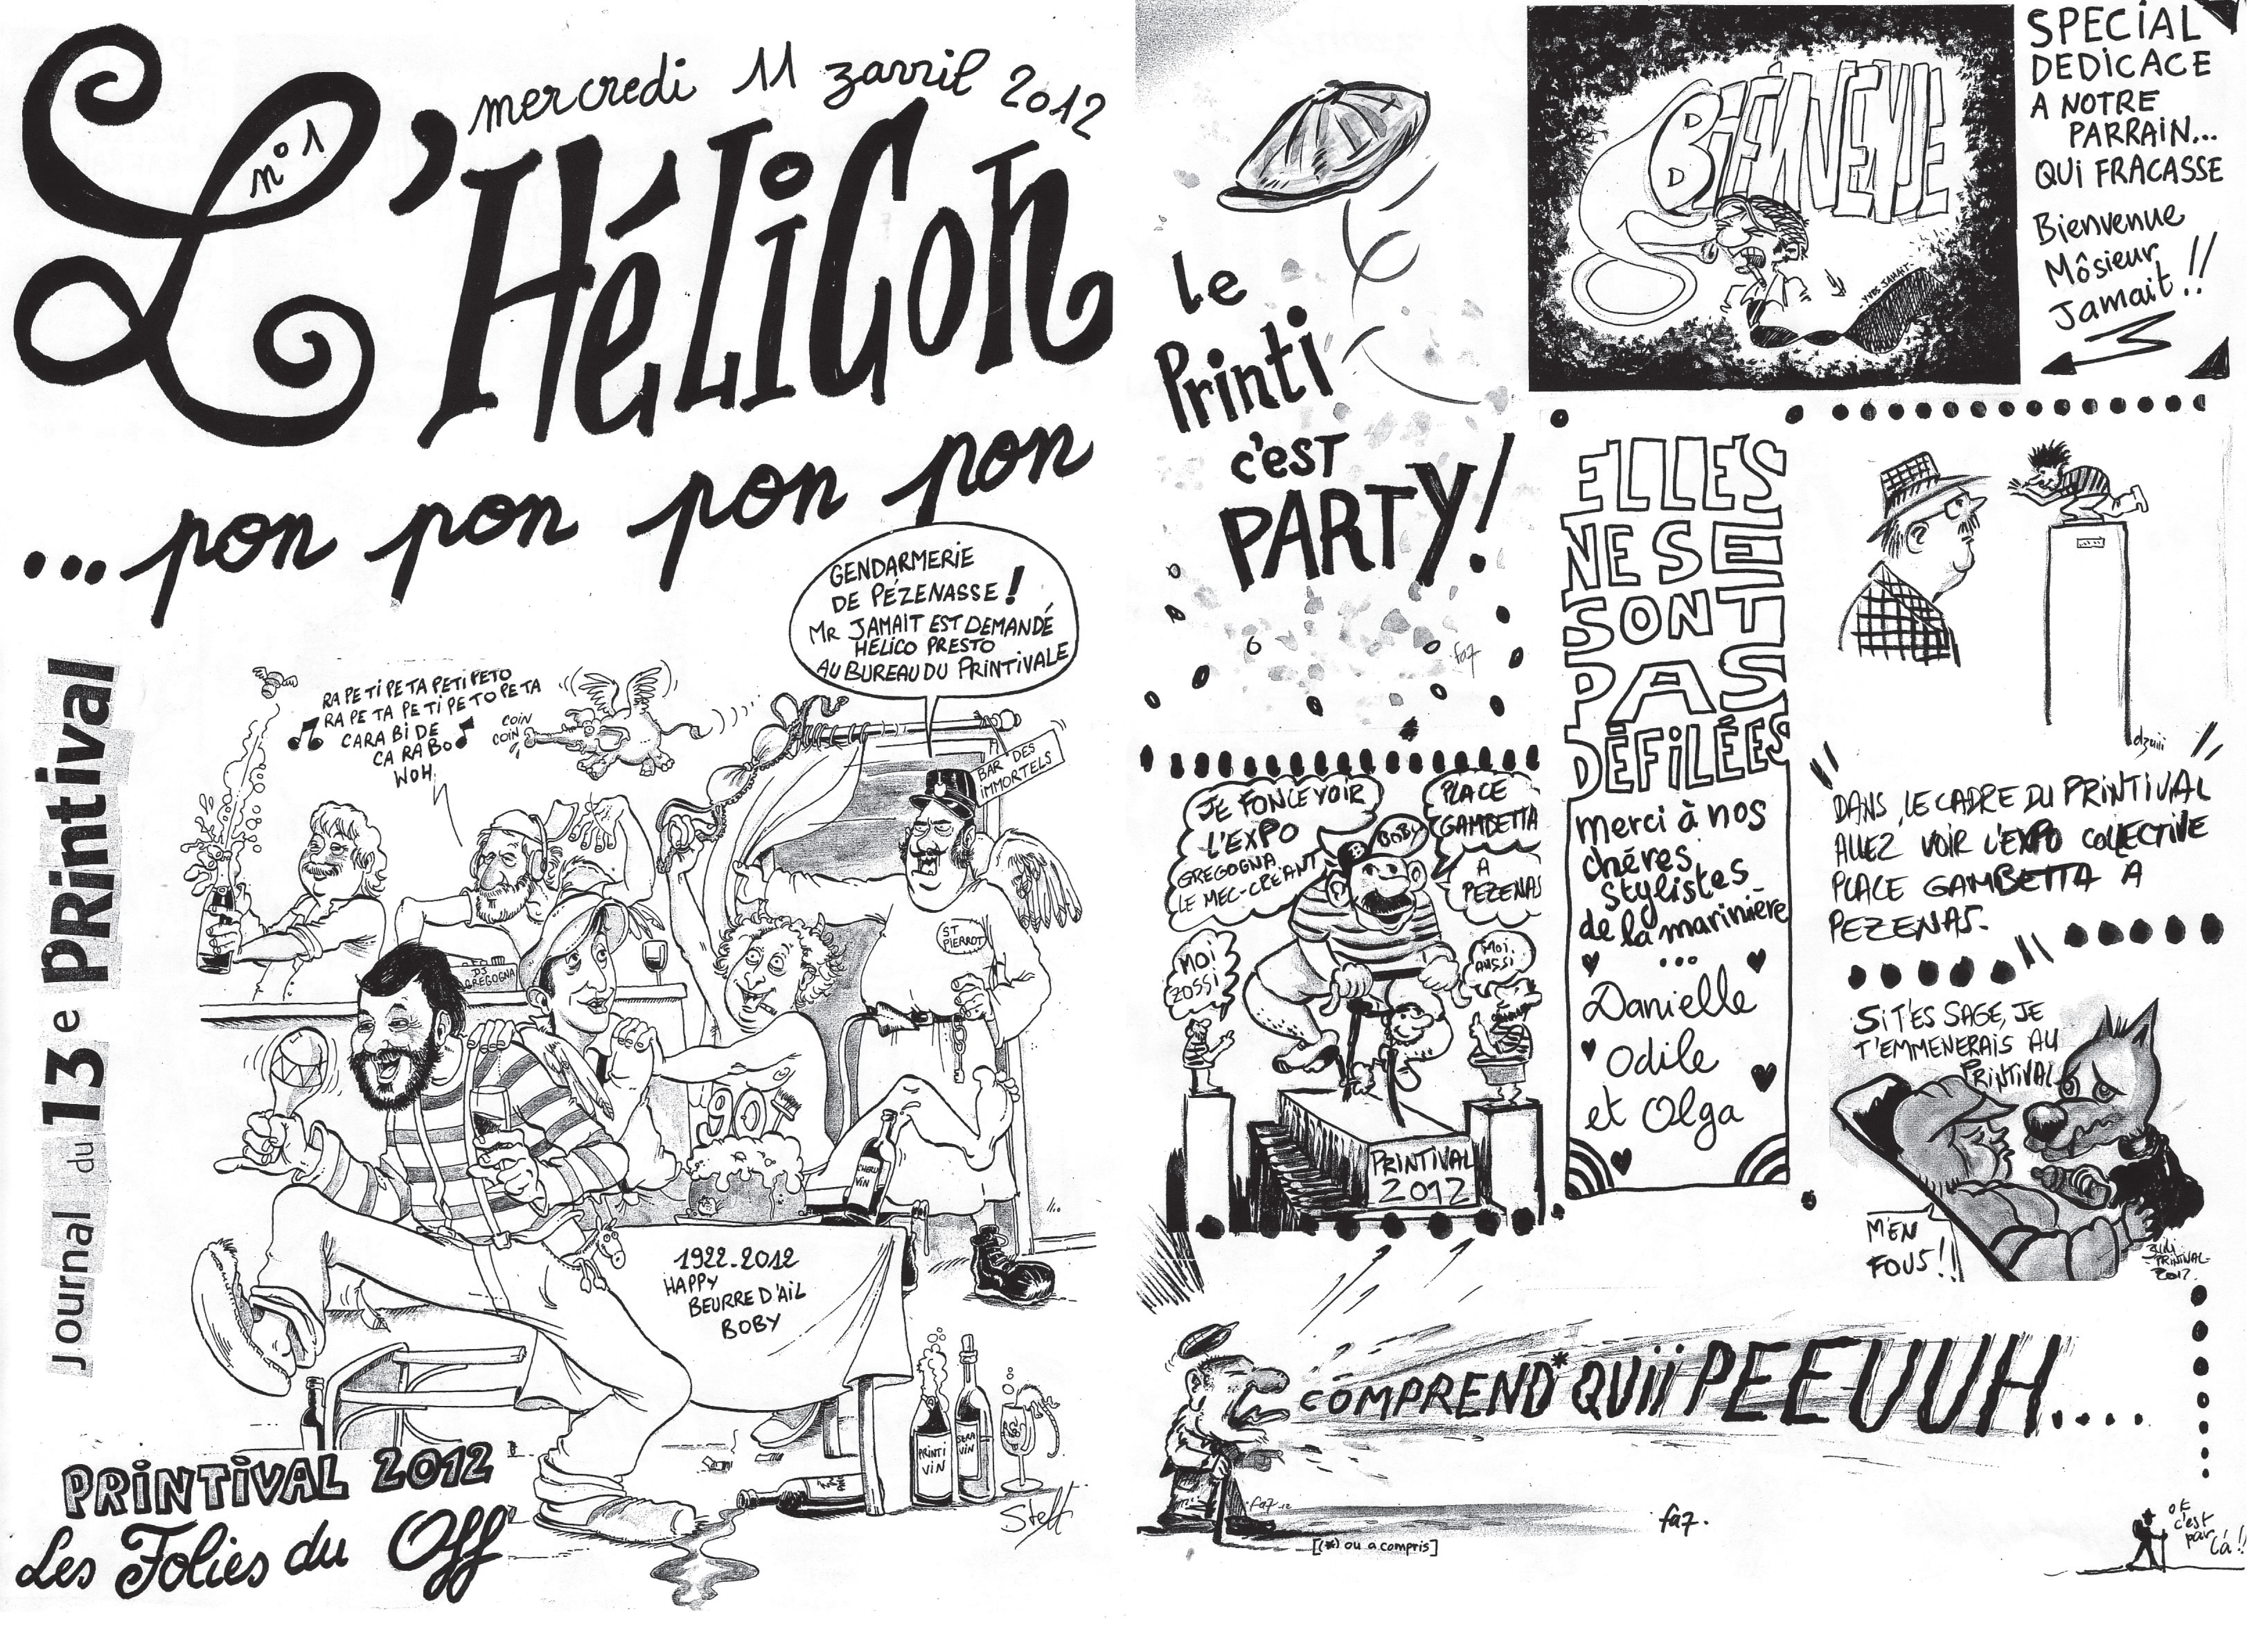 mercredi 11 zavril 2012
n°1
L'HéLiCon
... pon pon pon pon
Journal du 13e PRintival
GENDARMERIE
DE PÉZENASSE !
MR JAMAIT EST DEMANDÉ
HÉLICO PRESTO
AU BUREAU DU PRINTIVALE
RA PE TI PETA PETI PETO
RA PE TA PE TI PE TO PETA
CARA BI DE
CA RA BO
WOH
COIN
COIN
BAR DES
IMMORTELS
ST
PIERROT
DJ
GREGOGNA
90
CHERU
VIN
1922-2012
HAPPY
BEURRE D'AIL
BOBY
PRINTI
VIN
SERA
VIN
Steff
PRINTIVAL 2012
Les Folies du Off
le
Printi
c'EST
PARTY!
fa7
BIENVENUE
YVES JAMAIT
SPECIAL
DEDICACE
A NOTRE
PARRAIN...
QUi FRACASSE
Bienvenue
Môsieur
Jamait !!
ELLES
NE SE
SONT
PAS
DÉFILÉES
merci à nos
chères
stylistes
de la marinière
...
Danielle
Odile
et Olga
dzuiii
DANS LE CADRE DU PRINTIVAL
ALLEZ VOIR L'EXPO COLLECTIVE
PLACE GAMBETTA A
PEZENAS.
JE FONCE VOIR
L'EXPO
GREGOGNA
LE MEC-CRÉANT
BOBY
PLACE
GAMBETTA
A
PEZENAS
MOI
ZOSSI
MOI
AUSSI
PRINTIVAL
2012
Si T'ES SAGE, JE
T'EMMENERAIS AU
PRINTIVAL
M'EN
FOUS!!
PRINTIVAL
2012.
COMPREND* QUiii PEEUUH....
fa7 12
fa7.
[(*) ou a compris]
OK
c'est
par
là !!